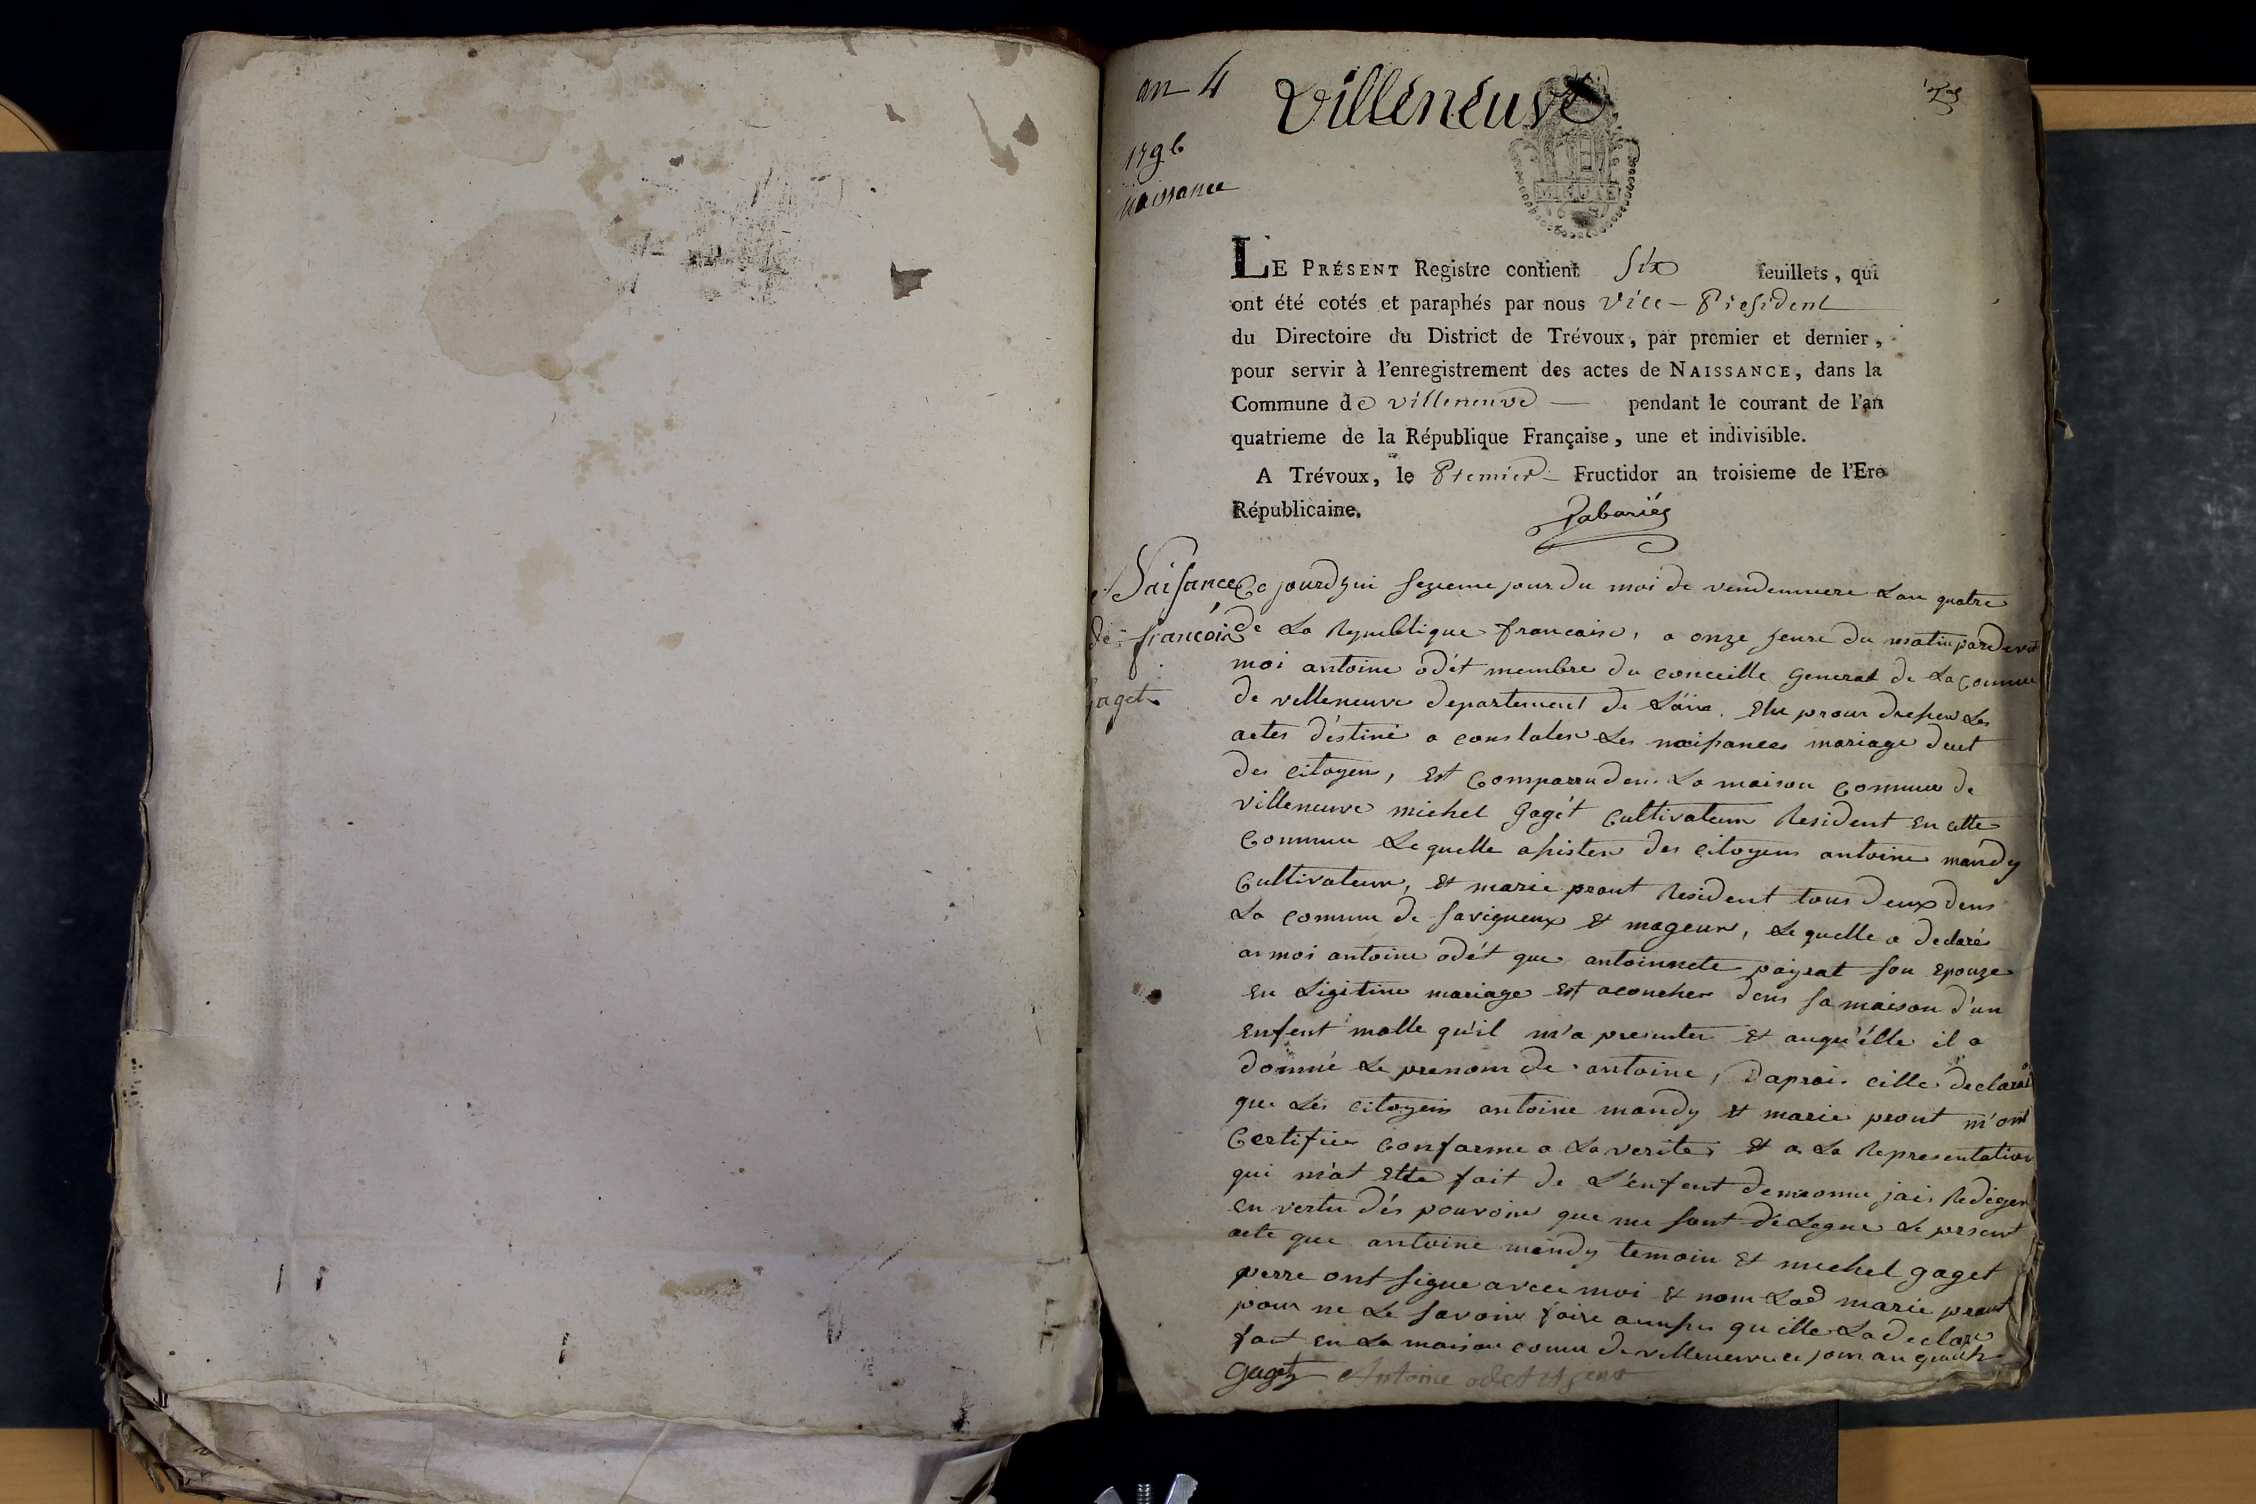 an 4
villéneuve
1796
Naissance
MINUTE
LE PRÉSENT Registre contient Six feuillets, qui
ont été cotés et paraphés par nous Vice-President
du Directoire du District de Trévoux, par premier et dernier,
pour servir à l'enregistrement des actes de NAISSANCE, dans la
Commune de villeneuve — pendant le courant de l'an
quatrieme de la République Française, une et indivisible.
A Trévoux, le Premier Fructidor an troisieme de l'Ere
Républicaine.
Naisance
de francois
gaget
Ce jourdhui sezieme jour du moi de vendemiere Lan quatre
de La Republique francaise, a onze heure du matin pardevent
moi antoine odét membre du conceille general de La Commune
de velleneuve departement de L'ain. Elu pour dresser Les
actes déstiné a constater Les naissances mariage deces
des citoyens, Est Comparru dens La maison Commune de
villeneuve michel gagét Cultivateur Resident En cette
Commune Lequelle assister des citoyens antoine mandy
Cultivateur, Et marie prout Resident tous deux dens
La comune de savigneux Et mageur, Le quelle a declaré
a moi antoine odét que antoinnete payrat son Epouze
En Ligitime mariage Est acoucher dens sa maison d'un
Enfent malle qu'il m'a presenter Et auqu'élle il a
donné Le prenom de antoine, d'aprais cette declarati
que Lés citoyens antoine mandy Et marie prout m'ont
Certifier Conforme a La verite Et a La Representation
qui m'at Ette fait de L'énfent denomme jai Rediger
En vertu dés pouvoirs que me sont délegue Le present
acte que antoine mandy temoin Et michel gaget
perre ont signe avec moi Et nom Lad marie prout
pour ne Le savoir faire quelle La declare
fait En La maison comune de velleneuve ce jour an
gaget Antoine odet